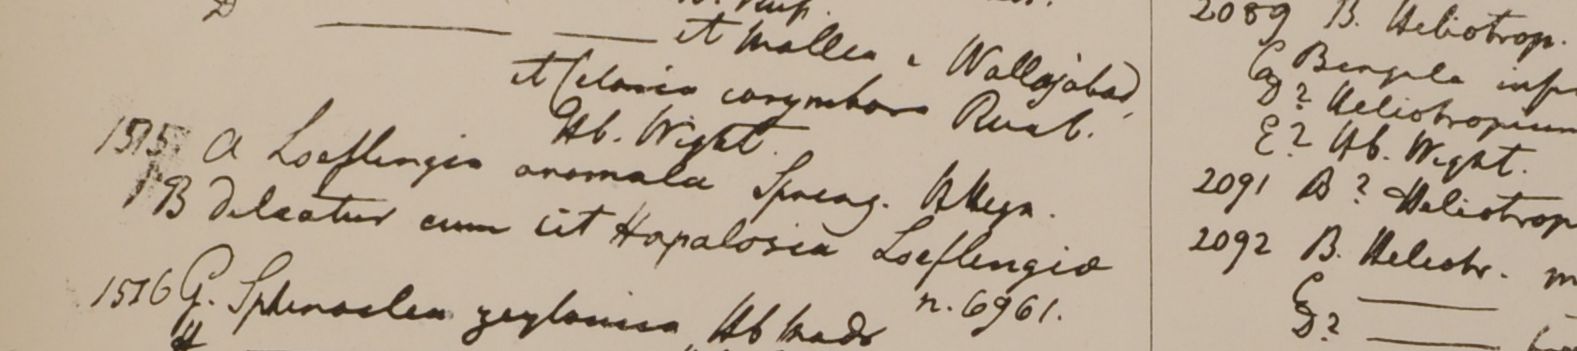 et Mollia e Wallajabad
et Celosia corymbosa Roxb.
Hb. Wight.
1515 A Loeflengia anomala Spreng. H Heyn.
B deleatur cum sit Hapalosia Loeflengiæ
n. 6961.
1516 G. Sphenoclea zeylanica, Hb Madr
H
2089 B. Heliotrop.
C Bengala inf
D? Heliotropium
E? Hb. Wight.
2091 B? Heliotrop
2092 B. Heliotr. m
C
D?